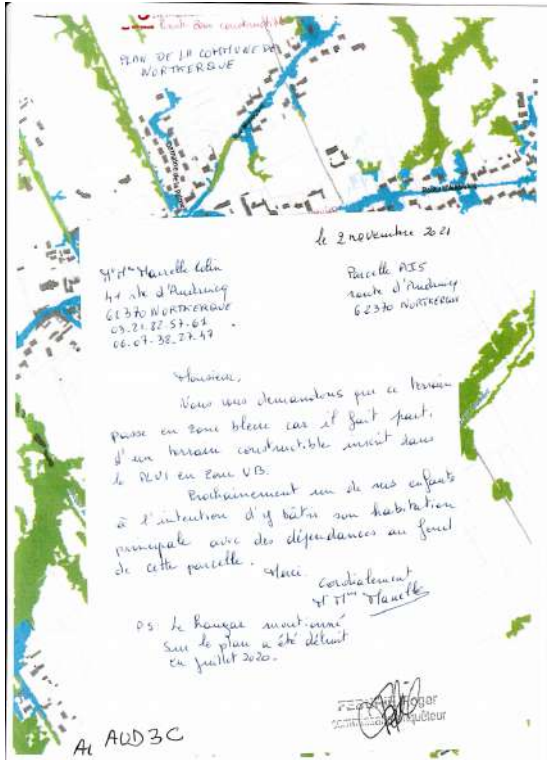 limite zone constructible
PLAN DE LA COMMUNE DE
NORTKERQUE
le 2 novembre 2021
Mr Mme Marcelle Colin
41 rte d'Audruicq
62370 NORTKERQUE
03.21.82.57.61
06.07.38.27.47
Parcelle AI5
route d'Audruicq
62370 NORTKERQUE
Monsieur,
Nous vous demandons que ce terrain
passe en zone bleue car il fait part,
d'un terrain constructible inscrit dans
le PLUI en zone UB.
Prochainement un de nos enfants
à l'intention d'y bâtir son habitation
principale avec des dépendances au fond
de cette parcelle. Merci.
Cordialement
Mr Mme Marcelle
PS: Le hangar mentionné
sur le plan a été détruit
en juillet 2020.
Roger
enquêteur
AUD3C